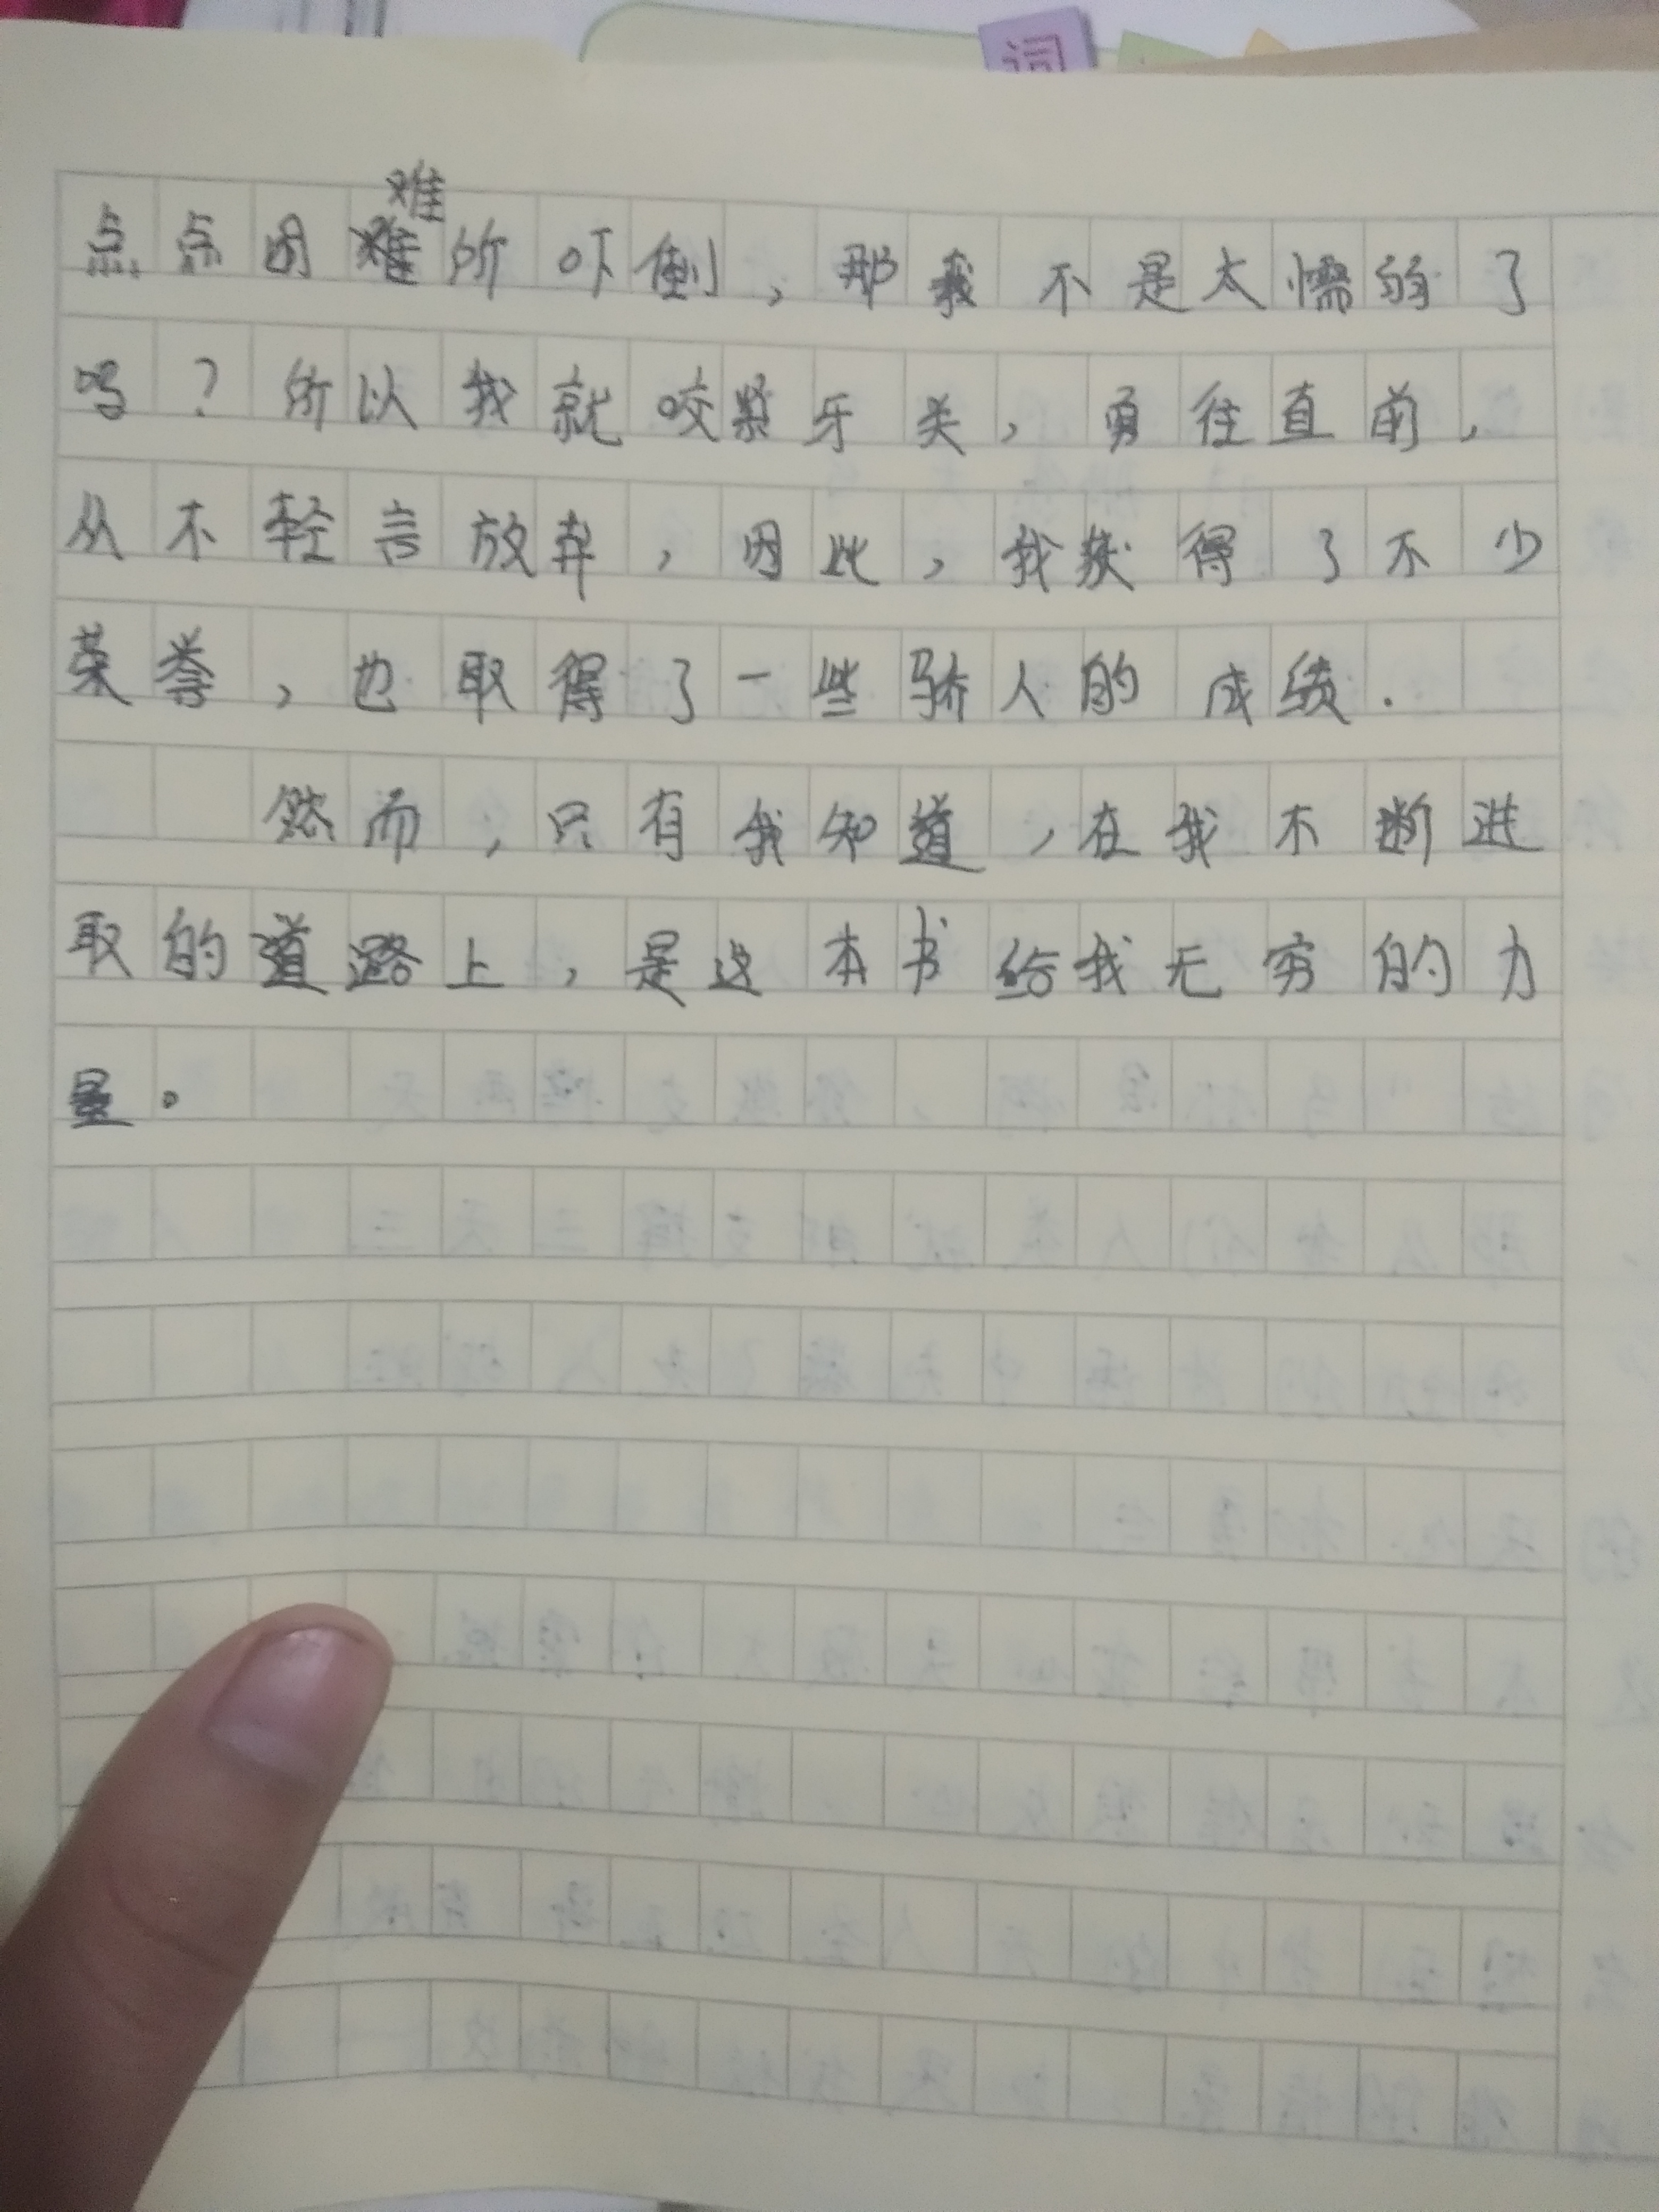 词
难
点点困难所吓倒，那我不是太懦弱了
吗？所以我就咬紧牙关，勇往直前，
从不轻言放弃，因此，我获得了不少
荣誉，也取得了一些骄人的成绩.
然而，只有我知道，在我不断进
取的道路上，是这本书给我无穷的力
量。